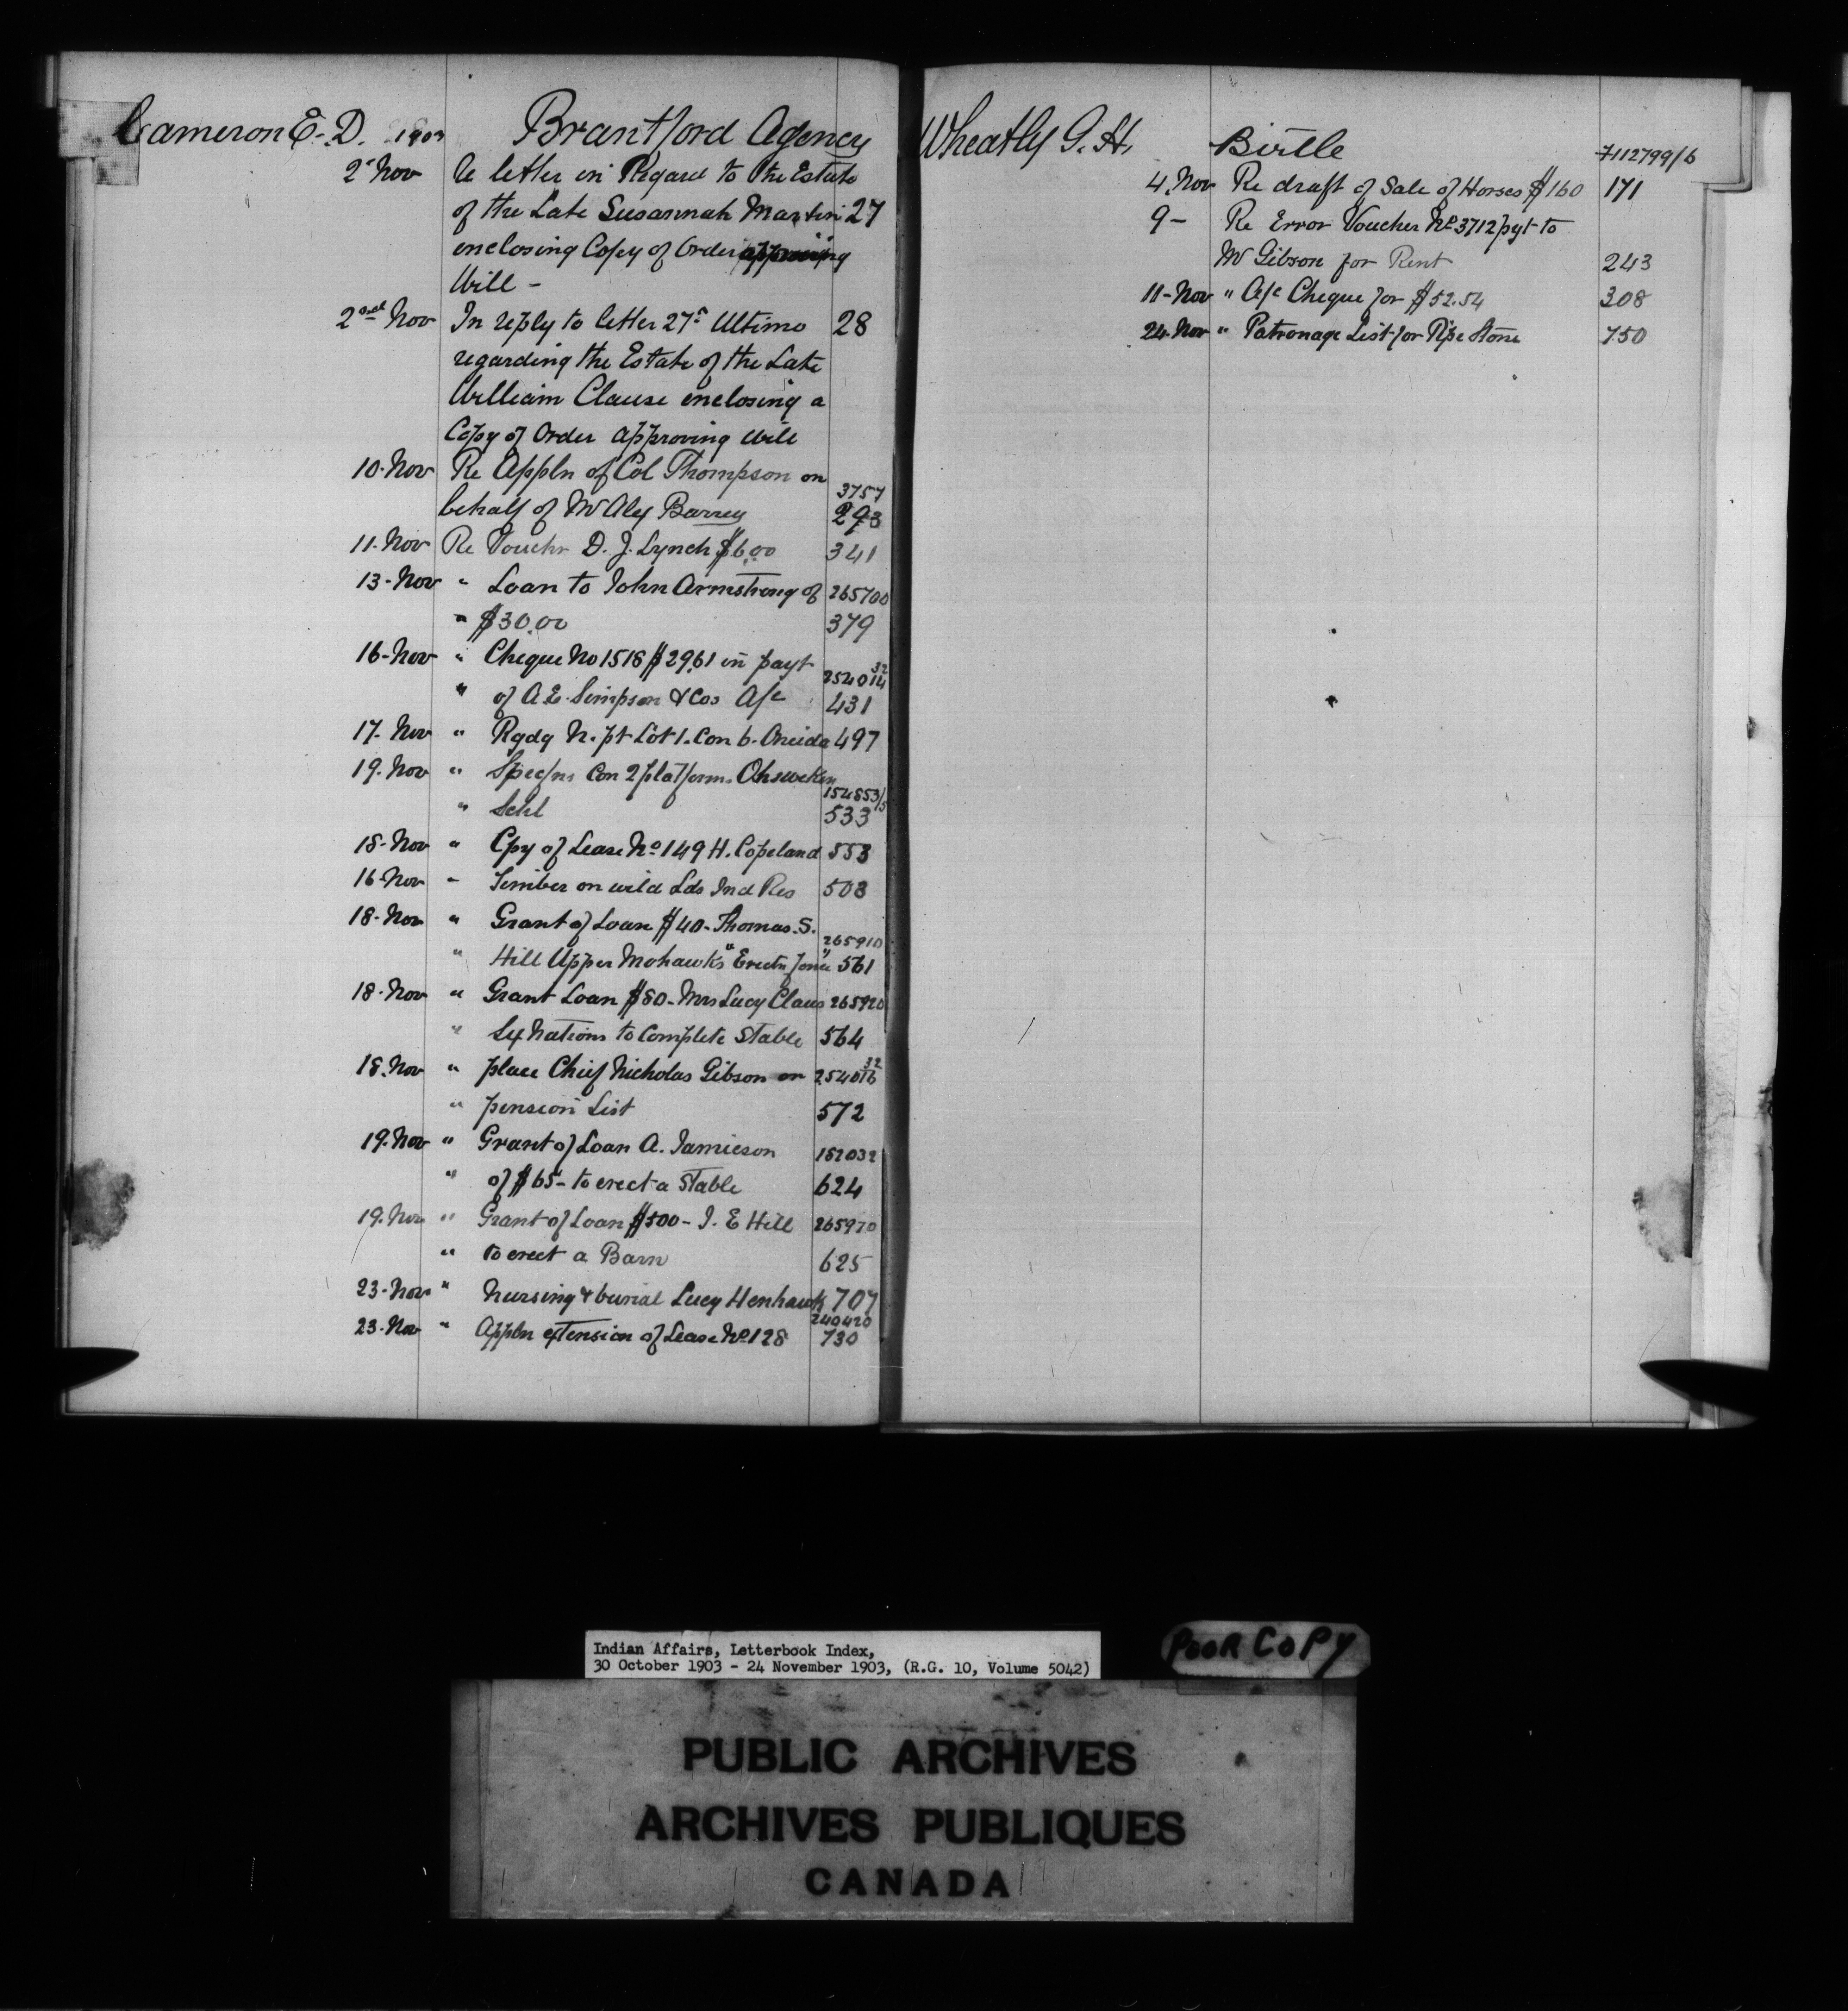 Cameron E. D. 1903 Brantford Agency
2d Nov Re letter in Regard to the Estate
of the Late Susannah Martin 27
enclosing Copy of Order approving
Will -
2nd Nov In reply to letter 27th Ultimo 28
regarding the Estate of the Late
William Clause enclosing a
Copy of Order approving Will
10. Nov Re Appln of Col Thompson on
3757
behalf of Mr Alex Barrey 293
11. Nov Re Vouchr D. J. Lynch $6.00 341
13- Nov " Loan to John Armstrong of 265700
" $30.00 379
16- Nov " Cheque No 1518 $29.61 in payt 32
254014
" of A. E. Simpson & Cos A/c 431
17. Nov " Rgdg N. pt Lot 1. Con 6. Oneida 497
19. Nov " Specfns Con 2 platforms Ohsweken
154853/5
" Schl 533
18- Nov " Cpy of Lease No 149 H. Copeland 553
16- Nov " Timber on wild Lds Ind Res 503
18- Nov " Grant of Loan $40- Thomas. S.
265910
" Hill Upper Mohawks "Erectn fence" 561
18- Nov " Grant Loan $80- Mrs Lucy Claus 265920
" Sx Nations to Complete Stable 564
18. Nov " place Chief Nicholas Gibson on 254016 32
" pension List 572
19. Nov " Grant of Loan A. Jamieson 152032
" of $65- to erect a Stable 624
19. Nov " Grant of Loan $500- J. E Hill 265970
" to erect a Barn 625
23- Nov " Nursing & burial Lucy Henhawk 707
240420
23- Nov " Appln extension of Lease No 128 730
Wheatly G. H. Birtle 7112799/6
4. Nov Re draft of Sale of Horses $160 171
9- Re Error Voucher No 3712 pyt to
Mr Gibson for Rent 243
11- Nov " A/c Cheque for $52.54 308
24. Nov " Patronage List for Pipe Stone 750
Indian Affairs, Letterbook Index,
30 October 1903 - 24 November 1903, (R.G. 10, Volume 5042)
POOR COPY
PUBLIC ARCHIVES
ARCHIVES PUBLIQUES
CANADA